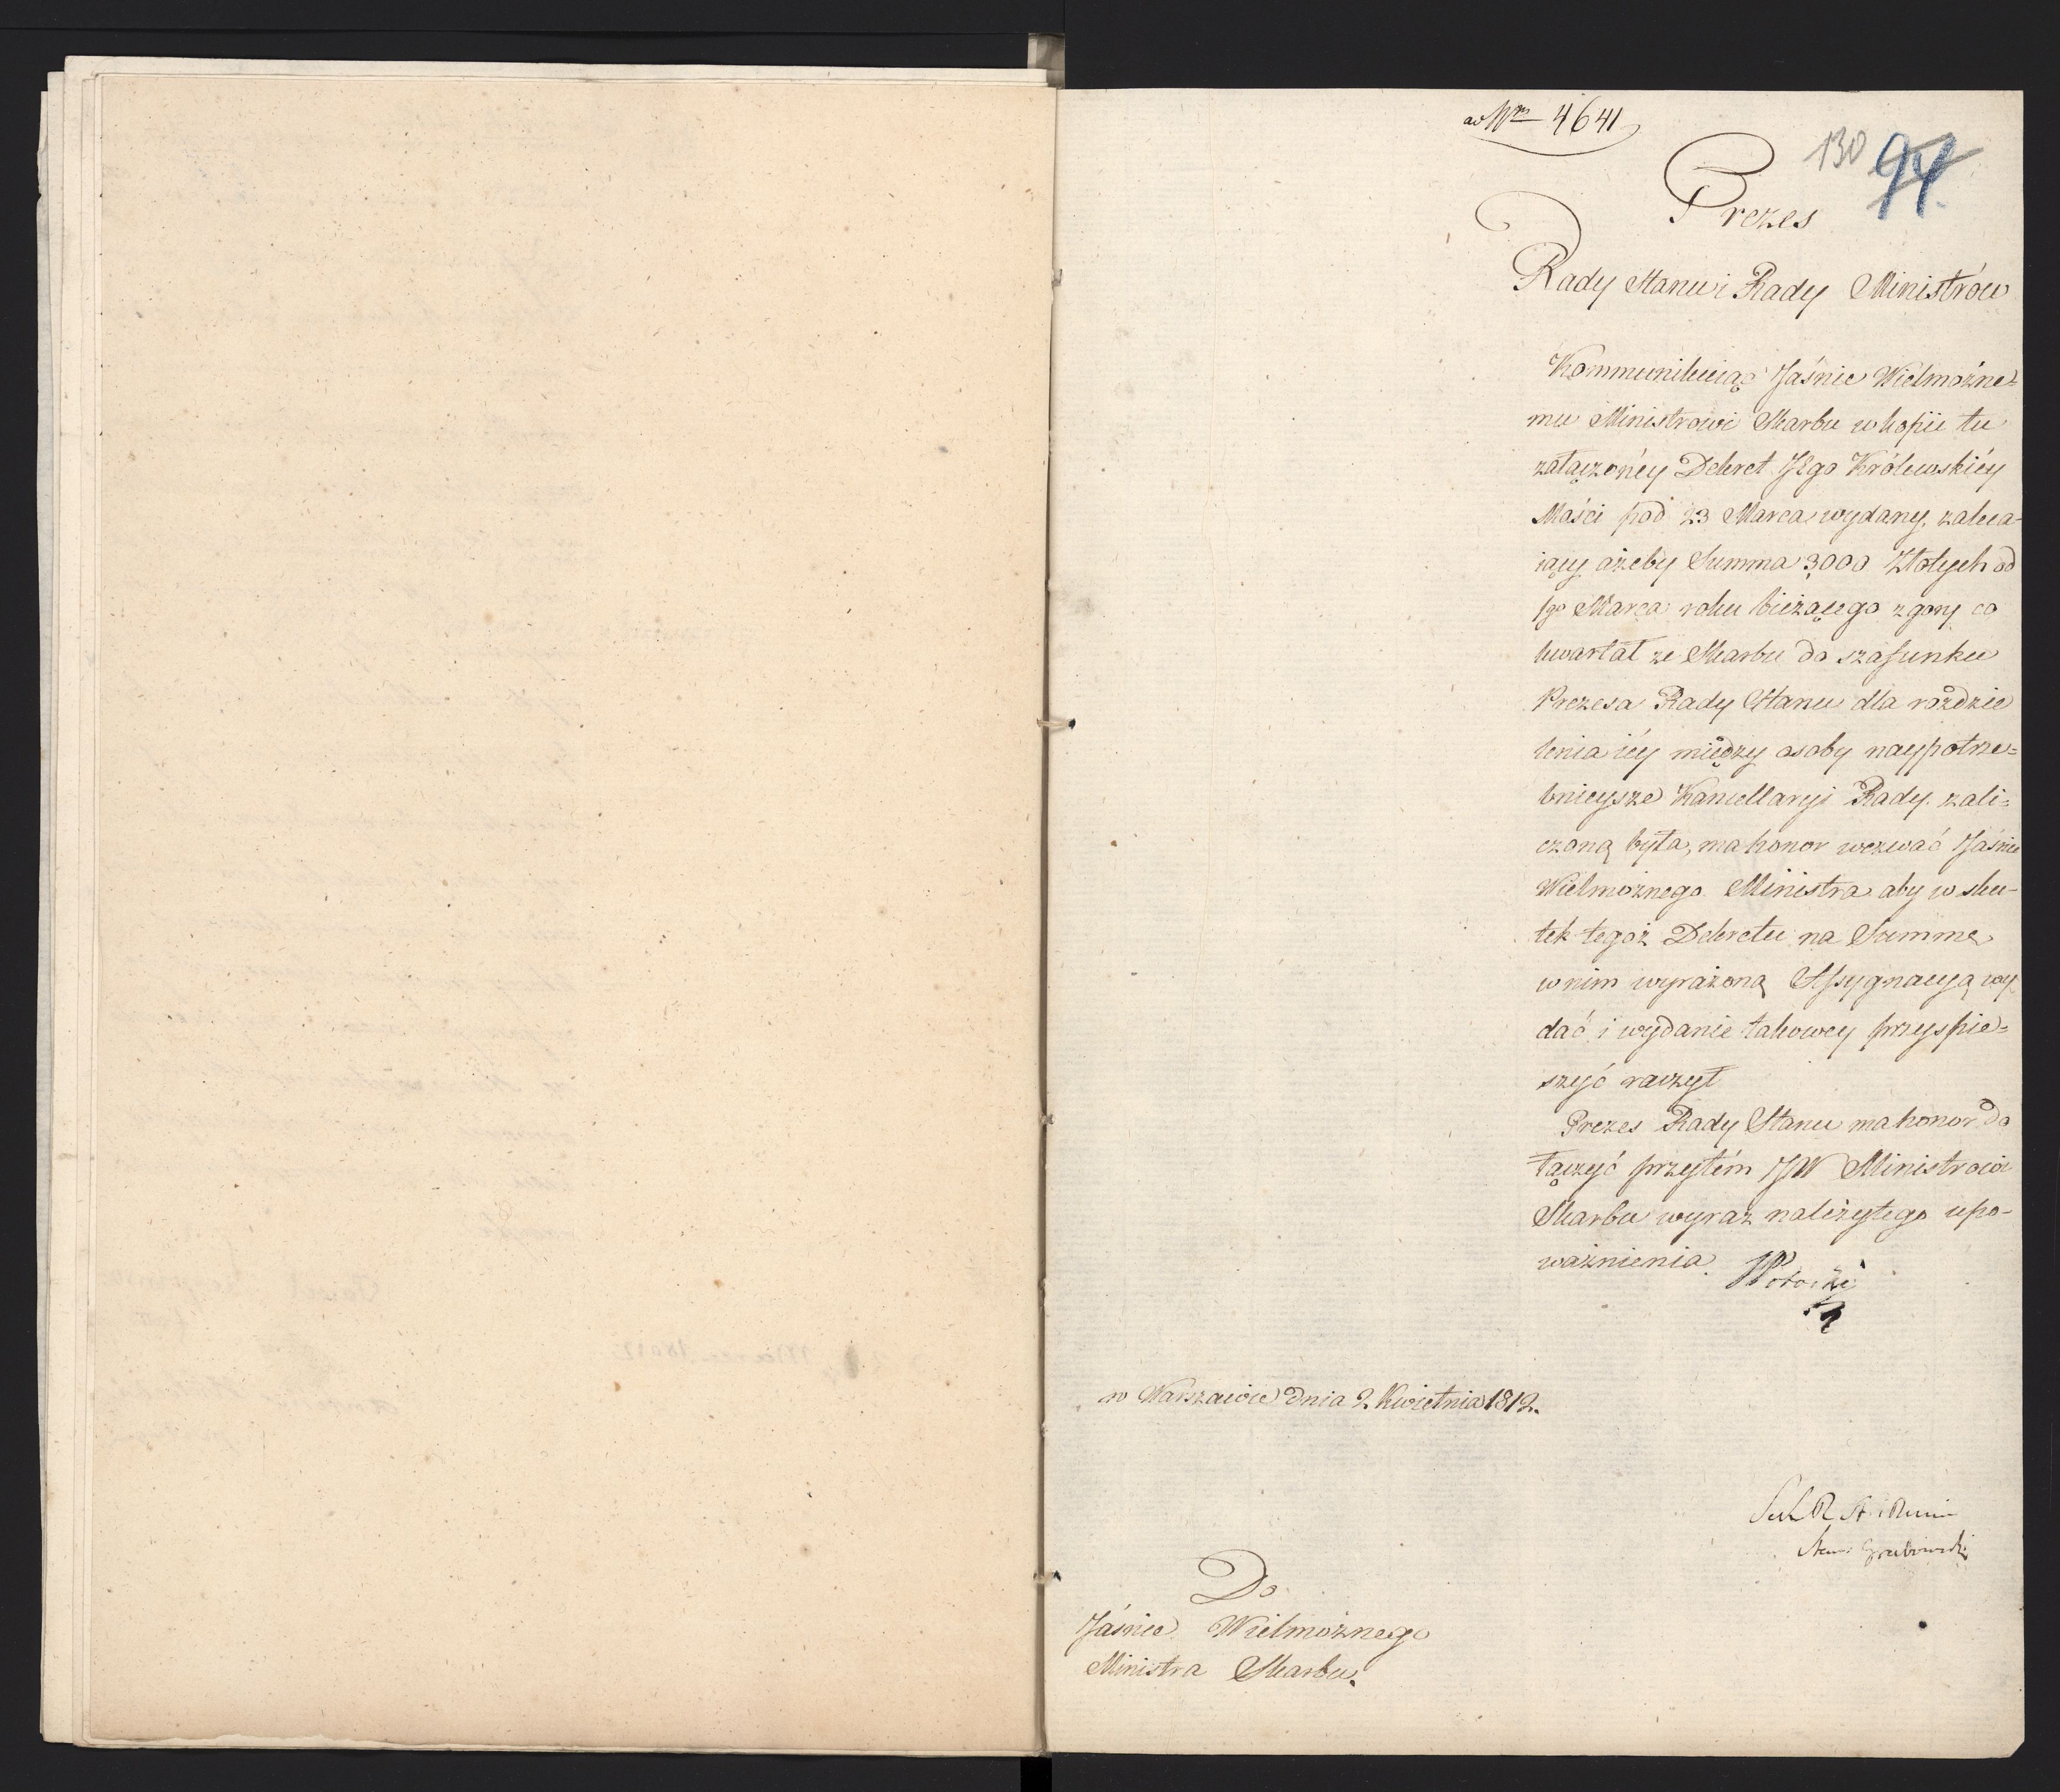 ad Nrm 4641
130 94.
Prezes
Rady Stanu i Rady Ministrów
Kommunikuiąc Jaśnie Wielmożne-
mu Ministrowi Skarbu w kopii tu
załączonéy Dekret JEgo Królewskiéy
Mości pod 23 Marca wydany, zaleca-
iący ażeby Summa 3000 Złotych od
1go Marca roku bieżącego z gory co
kwartał ze Skarbu do szafunku
Prezesa Rady Stanu dla rozdzie
lenia iéy między osoby naypotrze=
bnieysze Kancellaryi Rady zali=
czoną była, ma honor wezwać Jaśnie
Wielmożnego Ministra aby w sku-
tek tegoż Dekretu na Summę
w nim wyrażoną Assygnacyą wy
dać i wydanie takowey przyspie=
szyć raczył
Prezes Rady Stanu ma honor do
łączyć przytém JW Ministrowi
Skarbu wyraz należytego upo-
ważnienia.
Potocki
w Warszawie dnia 2 Kwietnia 1812.
Sek R St i R Min
Grabowski
Do
Jaśnie Wielmożnego
Ministra Skarbu.